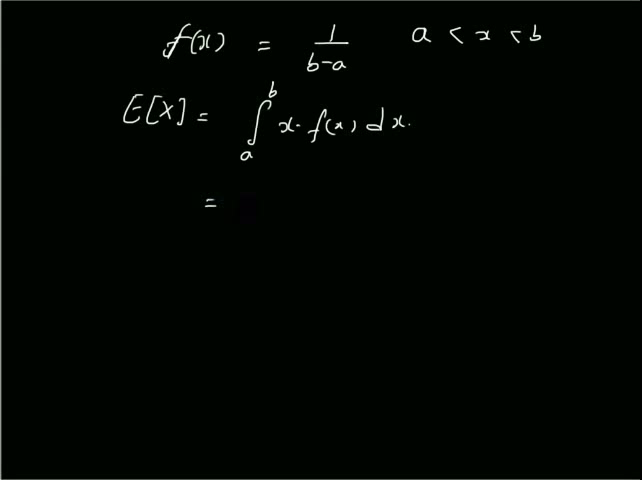 f(x) = 1/(b-a) a < x < b
E[X] = ∫_a^b x. f(x) dx.
=